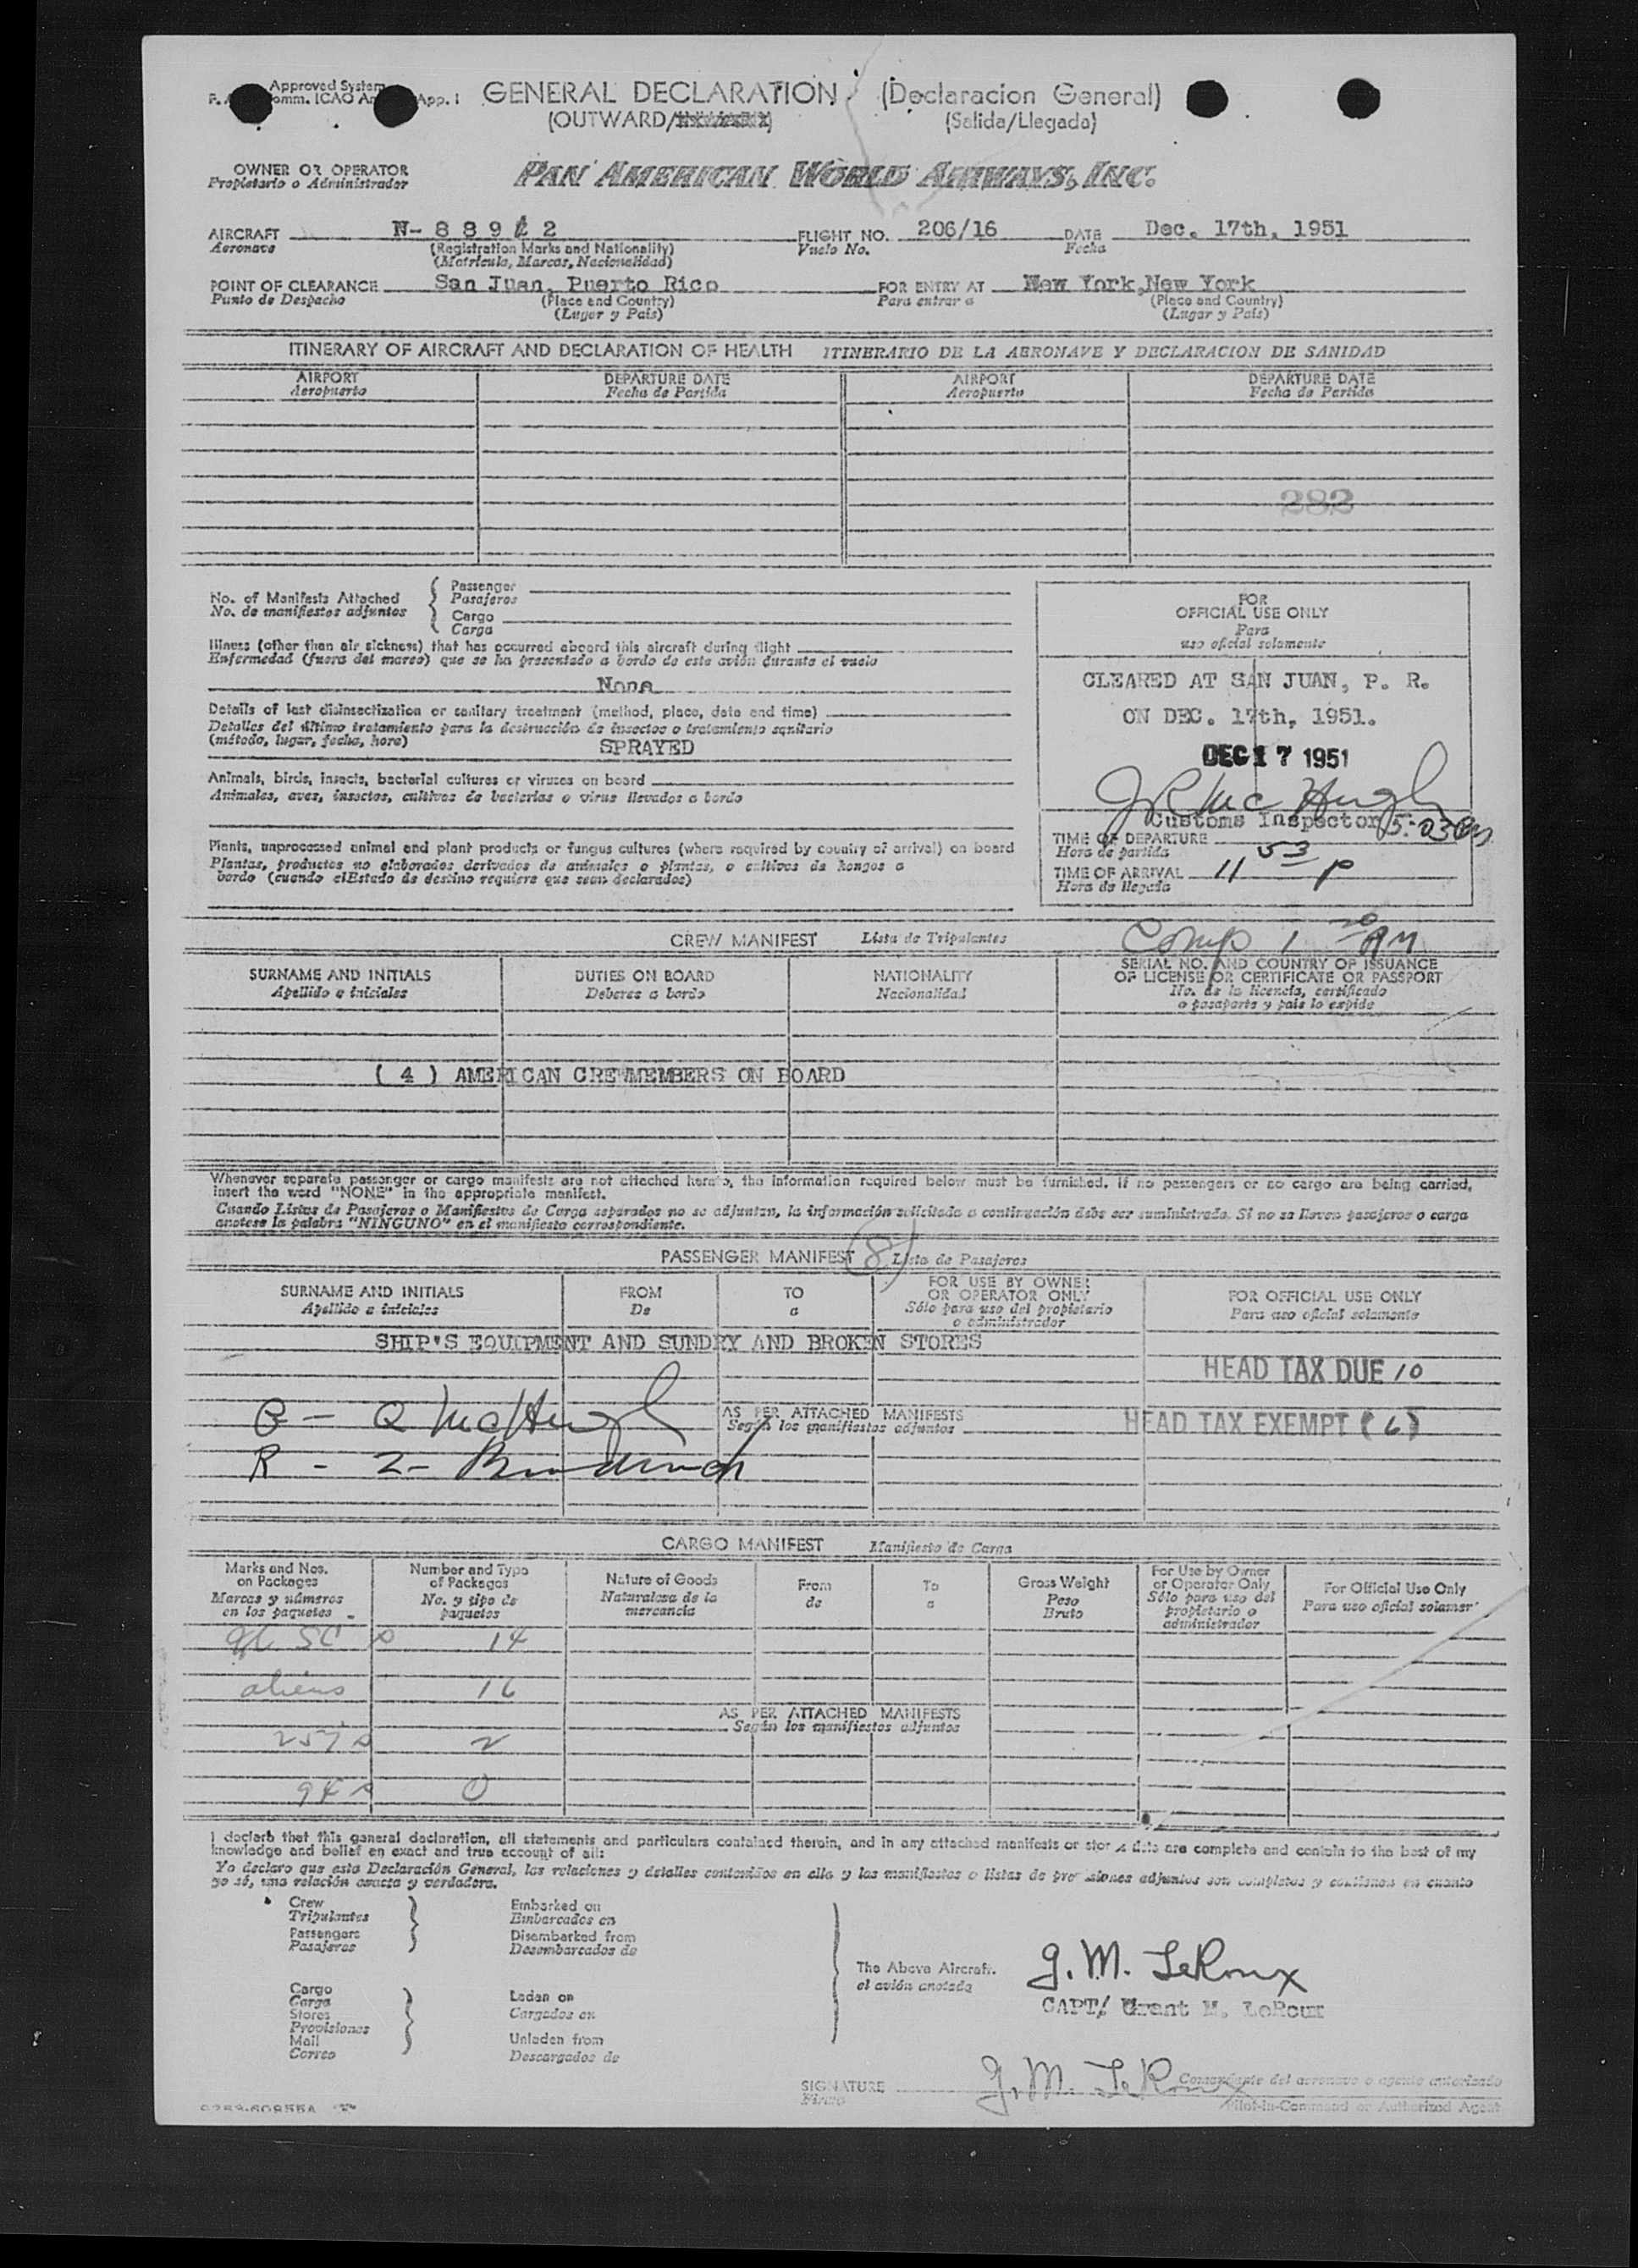 Approved System
App. 1
GENERAL DECLARATION (Declaracion General)
(OUTWARD/ (Salida/Llegada)
OWNER OR OPERATOR
Propietario o Administrador
PAN AMERICAN WORLD AIRWAYS, INC.
AIRCRAFT N-889 2 FLIGHT NO. 206/16 DATE Dec. 17th, 1951
Aeronave (Registration Marks and Nationality) Vuelo No. Fecha
(Matricula, Marcas, Nacionalidad)
POINT OF CLEARANCE San Juan, Puerto Rico FOR ENTRY AT New York, New York
Punto de Despacho (Place and Country) Para entrar a (Place and Country)
(Lugar y Pais) (Lugar y Pais)
ITINERARY OF AIRCRAFT AND DECLARATION OF HEALTH ITINERARIO DE LA AERONAVE Y DECLARACION DE SANIDAD
AIRPORT DEPARTURE DATE AIRPORT DEPARTURE DATE
Aeropuerto Fecha de Partida Aeropuerto Fecha de Partida
282
No. of Manifests Attached
No. de manifiestos adjuntos
Passenger
Pasajeros
Cargo
Carga
Illness (other than air sickness) that has occurred aboard this aircraft during flight
Enfermedad (fuera del mareo) que se ha presentado a bordo de este avión durante el vuelo
None
Details of last disinsectization or sanitary treatment (method, place, date and time)
Detalles del último tratamiento para la destrucción de insectos o tratamiento sanitario
(método, lugar, fecha, hora)
SPRAYED
Animals, birds, insects, bacterial cultures or viruses on board
Animales, aves, insectos, cultivos de bacterias o virus llevados a bordo
Plants, unprocessed animal and plant products or fungus cultures (where required by country of arrival) on board
Plantas, productos no elaborados derivados de animales o plantas, o cultivos de hongos a
bordo (cuando elEstado de destino requiere que sean declarados)
FOR
OFFICIAL USE ONLY
Para
uso oficial solamente
CLEARED AT SAN JUAN, P. R.
ON DEC. 17th, 1951.
DEC 17 1951
J R McHugh
Customs Inspector
TIME OF DEPARTURE 5:03
Hora de partida
TIME OF ARRIVAL 11 53 P
Hora de llegada
Comp 1 20 AM
CREW MANIFEST Lista de Tripulantes
SURNAME AND INITIALS DUTIES ON BOARD NATIONALITY SERIAL NO. AND COUNTRY OF ISSUANCE
OF LICENSE OR CERTIFICATE OR PASSPORT
Apellido e iniciales Deberes a bordo Nacionalidad No. de la licencia, certificado
o pasaporte y pais lo expide
( 4 ) AMERICAN CREWMEMBERS ON BOARD
Whenever separate passenger or cargo manifests are not attached hereto, the information required below must be furnished. If no passengers or no cargo are being carried,
insert the word "NONE" in the appropriate manifest.
Cuando Listas de Pasajeros o Manifiestos de Carga separados no se adjuntan, la información solicitada a continuación debe ser suministrada. Si no se llevan pasajeros o carga
anotese la palabra "NINGUNO" en el manifiesto correspondiente.
PASSENGER MANIFEST (8) Lista de Pasajeros
SURNAME AND INITIALS FROM TO FOR USE BY OWNER
OR OPERATOR ONLY FOR OFFICIAL USE ONLY
Apellido e iniciales De a Sólo para uso del propietario
o administrador Para uso oficial solamente
SHIP'S EQUIPMENT AND SUNDRY AND BROKEN STORES
HEAD TAX DUE 10
McHugh
AS PER ATTACHED MANIFESTS
Según los manifiestos adjuntos
HEAD TAX EXEMPT (6)
R - 2-
CARGO MANIFEST Manifiesto de Carga
Marks and Nos.
on Packages
Marcas y números
en los paquetes
Number and Type
of Packages
No. y tipo de
paquetes
Nature of Goods
Naturaleza de la
mercancia
From
de
To
a
Gross Weight
Peso
Bruto
For Use by Owner
or Operator Only
Sólo para uso del
propietario o
administrador
For Official Use Only
Para uso oficial solamen
14
aliens 16
257s 2
0
AS PER ATTACHED MANIFESTS
Según los manifiestos adjuntos
I declare that this general declaration, all statements and particulars contained therein, and in any attached manifests or stor lists are complete and contain to the best of my
knowledge and belief an exact and true account of all:
Yo declaro que esta Declaración General, las relaciones y detalles contenidos en ella y los manifiestos o listas de provisiones adjuntos son completos y contienen en cuanto
yo sé, una relación exacta y verdadera.
Crew
Tripulantes
Passengers
Pasajeros
Embarked on
Embarcados en
Disembarked from
Desembarcados de
Cargo
Carga
Stores
Provisiones
Mail
Correo
Laden on
Cargados en
Unladen from
Descargados de
The Above Aircraft.
el avión anotado
G. M. LeRoux
CAPT/ Grant M. LeRoux
SIGNATURE G. M. LeRoux
Firma
Comandante del aeronave o agente autorizado
Pilot-in-Command or Authorized Agent